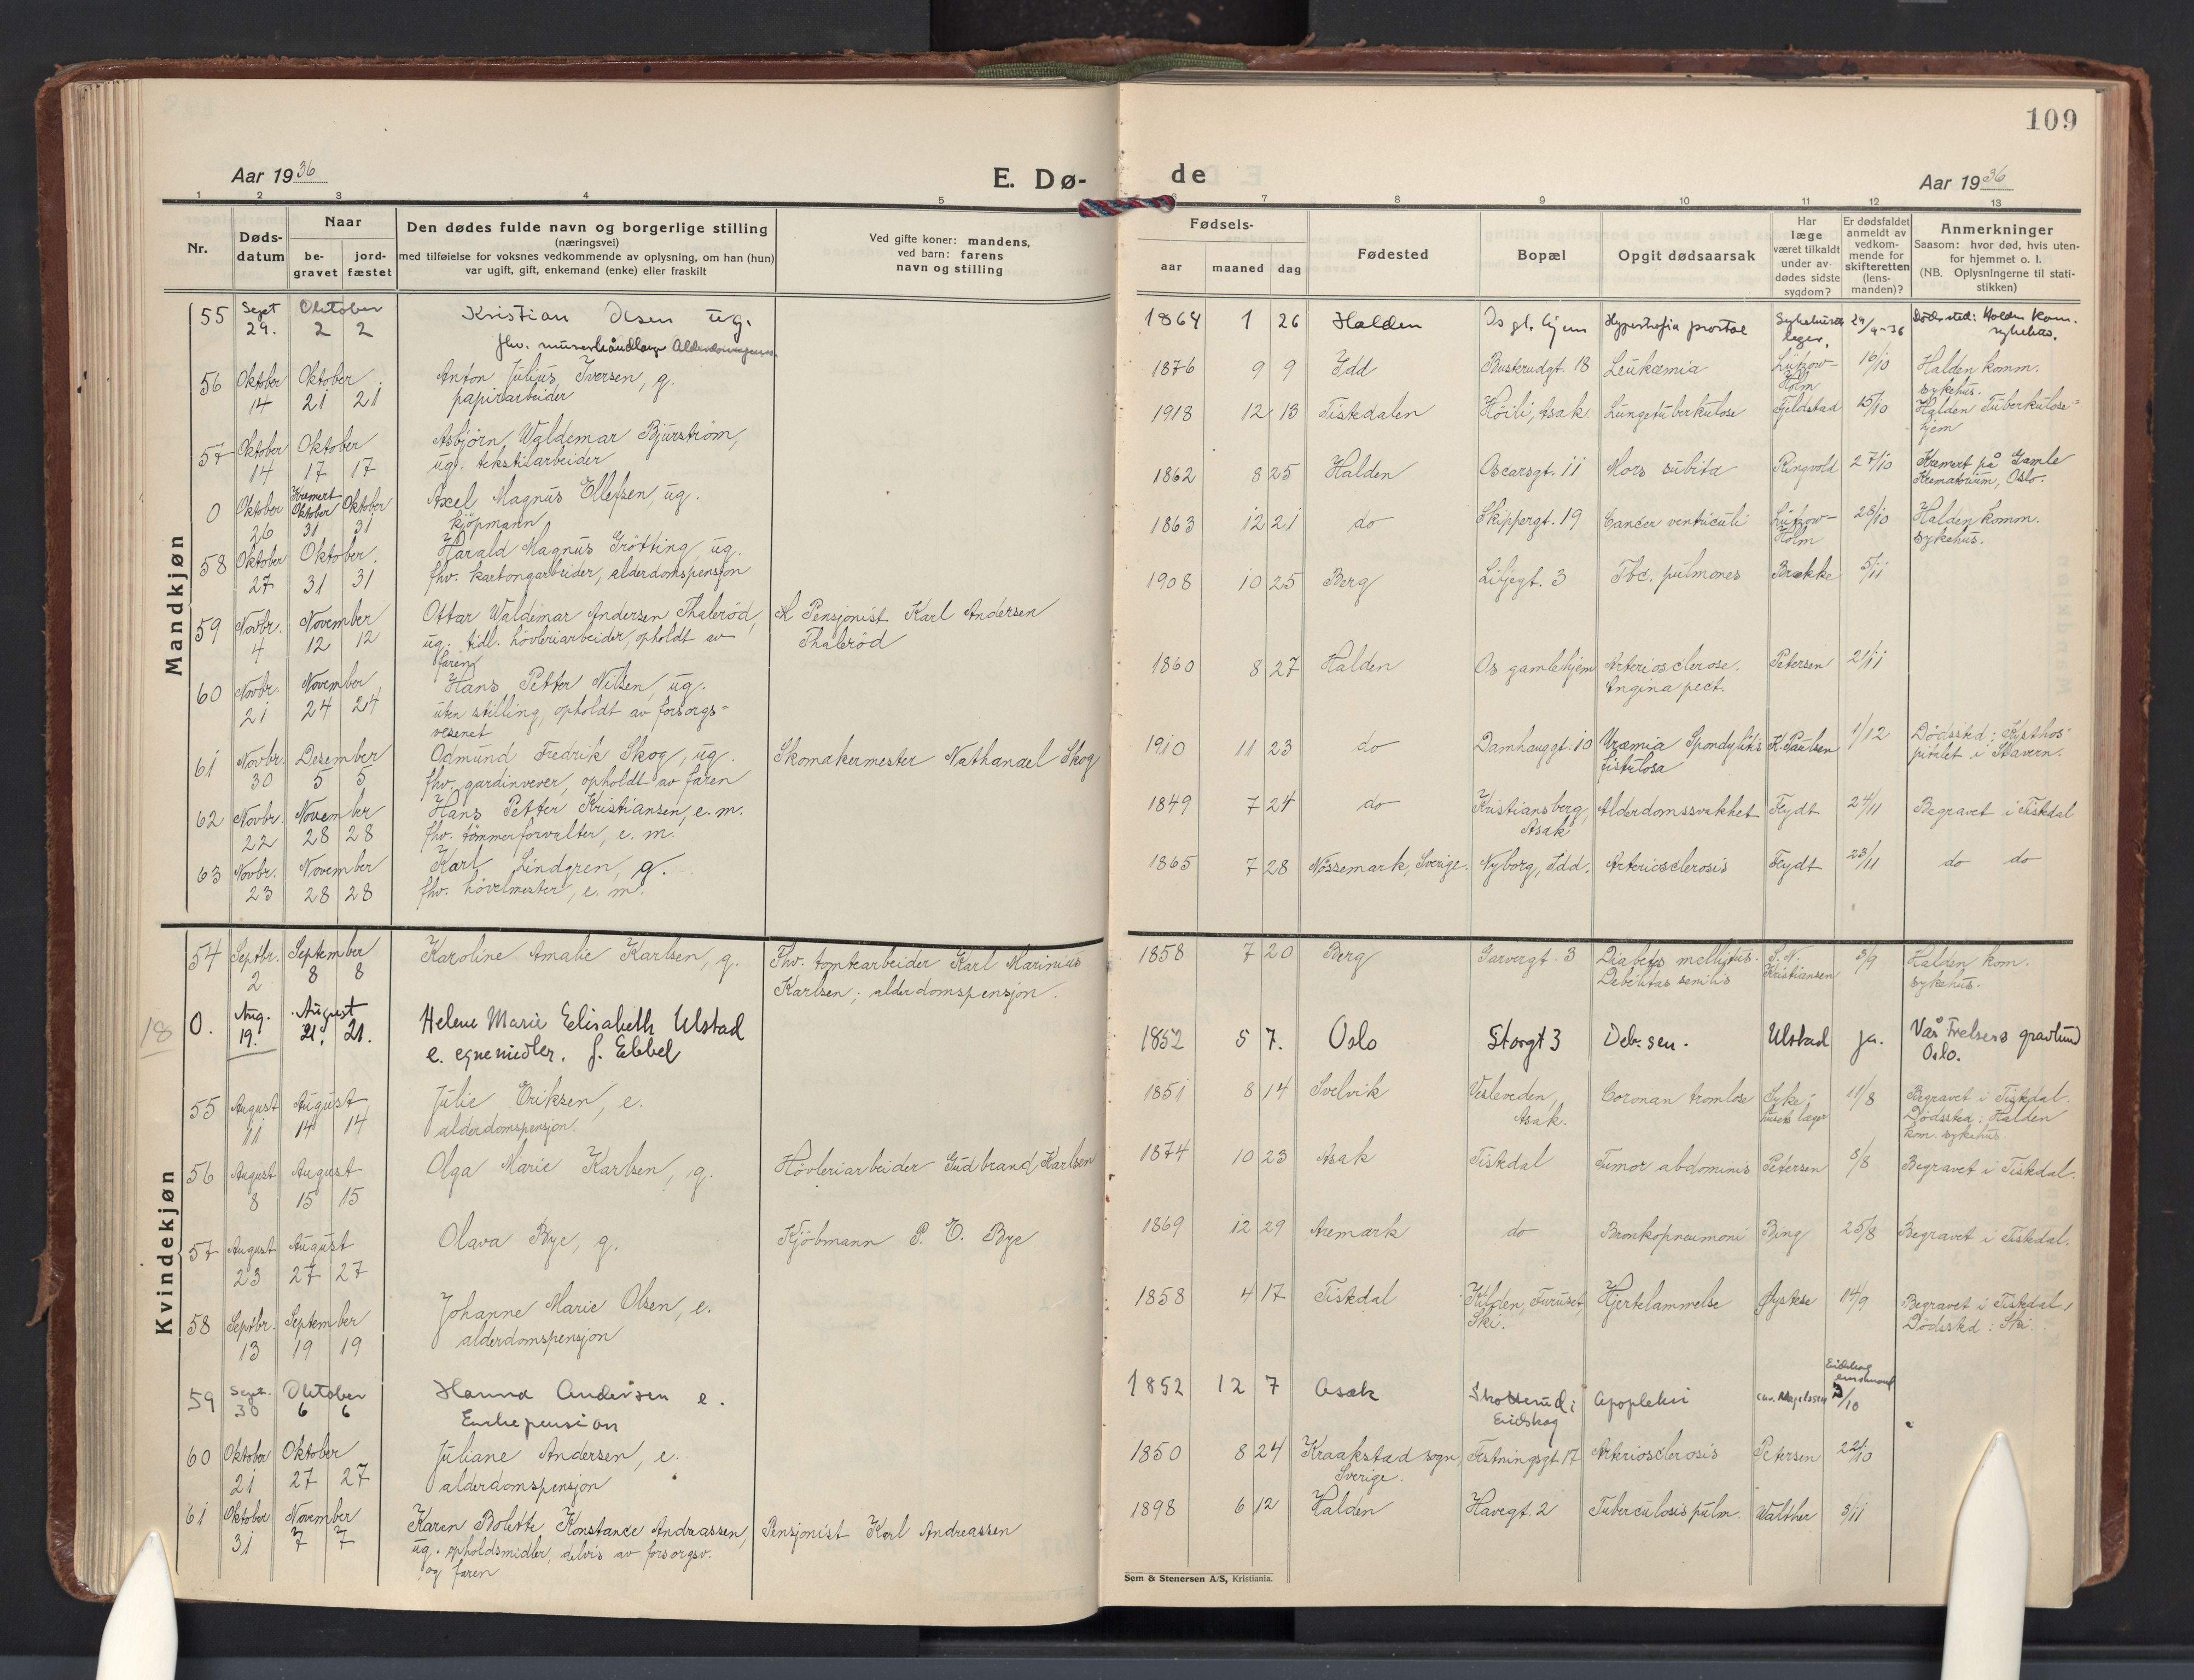 109
Aar 1936
E. Dø-
de
Aar 1936
1 2 3 4 5
6 7 8 9 10 11 12 13
Nr.
Døds-
datum
Naar
be-
gravet
jord-
fæstet
Den dødes fulde navn og borgerlige stilling
(næringsvei)
med tilføielse for voksnes vedkommende av oplysning, om han (hun)
var ugift, gift, enkemand (enke) eller fraskilt
Ved gifte koner: mandens,
ved barn: farens
navn og stilling
Fødsels-
aar maaned dag
Fødested
Bopæl
Opgit dødsaarsak
Har
læge
været tilkaldt
under av-
dødes sidste
sygdom?
Er dødsfaldet
anmeldt av
vedkom-
mende for
skifteretten
(lens-
manden)?
Anmerkninger
Saasom: hvor død, hvis uten-
for hjemmet o. l.
(NB. Oplysningerne til stati-
stikken)
Mandkjøn
55 Sept Oktober Kristian Olsen ug.
29. 2 2 fhv.
1864 1 26 Halden Os gl. hjem 29/9-36 Dødssted: Halden kom.
sykehus.
56 Oktober Oktober Anton Julius Iversen, g.
14 21 21 papirarbeider
1876 9 9 Idd Buskrudgt. 18 Leukæmia Lützow- 16/10 Halden komm.
Holm sykehus.
57 Oktober Oktober Asbjørn Waldemar Bjurstrøm,
14 17 17 ug. tekstilarbeider
1918 12 13 Tistedalen Høili, Asak Lungetuberkulose Fjeldstad 15/10 Halden Tuberkulose-
hjem
0 Oktober Kremert Oktober Oktober Axel Magnus Ellefsen, ug.
26 31 31 kjøpmann
1862 8 25 Halden Oscarsgt. 11 Mors subita Ringvold 27/10 Kremert på Gamle
Krematorium, Oslo.
58 Oktober Oktober Harald Magnus Grøtting, ug.
27 31 31 fhv. kartongarbeider, alderdomspensjon
1863 12 21 do Skippergt. 19 Cancer ventriculi Lützow- 28/10 Halden komm.
Holm sykehus.
59 Novbr. November Ottar Waldemar Andersen Thalerød, Pensjonist Karl Andersen
4 12 12 ug. tidl. høvleriarbeider, opholdt av Thalerød
faren
1908 10 25 Berg Liljegt. 3 Tbc. pulmones Brække 5/11
60 Novbr. November Hans Petter Nilsen, ug.
21 24 24 uten stilling, opholdt av forsorgs-
vesenet
1860 8 27 Halden Os gamlehjem Arteriosclerose. Petersen 21/11
Angina pect.
61 Novbr. Desember Odmund Fredrik Skog, ug. Skomakermester Nathanael Skog
30 5 5 fhv. gardinvever, opholdt av faren
1910 11 23 do Damhauggt. 10 Uræmia Spondylitis K. Paulsen 1/12 Dødssted: Kysthos-
fistulosa pitalet i Stavern.
62 Novbr. November Hans Petter Kristiansen, e. m.
22 28 28 fhv. tømmerforvalter, e. m.
1849 7 24 do Kristiansberg, Alderdomssvakhet Feydt 24/11 Begravet i Tistedal
Asak
63 Novbr. November Karl Lindgren, g.
23 28 28 fhv. høvelmester, e. m.
1865 7 28 Nössemark, Sverige. Nyborg, Idd. Arteriosclerosis Feydt 23/11 do do
Kvindekjøn
54 Septbr. September Karoline Amalie Karlsen, g. Fhv. tomtearbeider Karl Marinius
2 8 8 Karlsen; alderdomspensjon.
1858 7 20 Berg Garvergt. 3 Diabetes mellitus. S. N. 3/9 Halden kom.
Debilitas senilis Kristiansen sykehus.
18
0. Aug. August Helene Marie Elisabeth Ulstad
19. 21. 21. e. egne midler. f. Ebbel
1852 5 7. Oslo Storgt 3 Deb. sen. Ulstad ja. Vår Frelsers gravlund
Oslo.
55 August August Julie Eriksen, e.
11 14 14 alderdomspensjon.
1851 8 14 Svelvik Vesleveden, Coronan tromlose Syke- 11/8 Begravet i Tistedal.
Asak. husets læger Dødssted: Halden
kom. sykehus
56 August August Olga Marie Karlsen, g. Høvleriarbeider Gudbrand Karlsen
8 15 15
1874 10 23 Asak Tistedal Tumor abdominis Petersen 8/8 Begravet i Tistedal.
57 August August Olava Bye, g. Kjøbmann P. O. Bye
23 27 27
1869 12 29 Aremark do Bronkopneumoni Bing 25/8 Begravet i Tistedal.
58 Septbr. September Johanne Marie Olsen, e.
13 19 19 alderdomspensjon
1858 4 17 Tistedal Kilden, Furuset, Hjertelammelse 14/9 Begravet i Tistedal,
Ski. Dødssted: Ski.
59 Sept. Oktober Hanna Andersen e.
30 6 6 Enkepension
1852 12 7 Asak Skotterud i Apopleksi 3/10
Eidskog
60 Oktober Oktober Juliane Andersen, e.
21 27 27 alderdomspensjon
1850 8 24 Kraakstad sogn, Festningsgt 17 Arteriosclerosis Petersen 22/10
Sverige.
61 Oktober November Karen Bolette Konstance Andreassen, Pensjonist Karl Andreassen
31 7 7 ug. opholdsmidler, delvis av forsorgsv.
og faren
1898 6 12 Halden Havegt. 2 Tuberculosis pulm. Walther 3/11
Sem & Stenersen A/S, Kristiania.